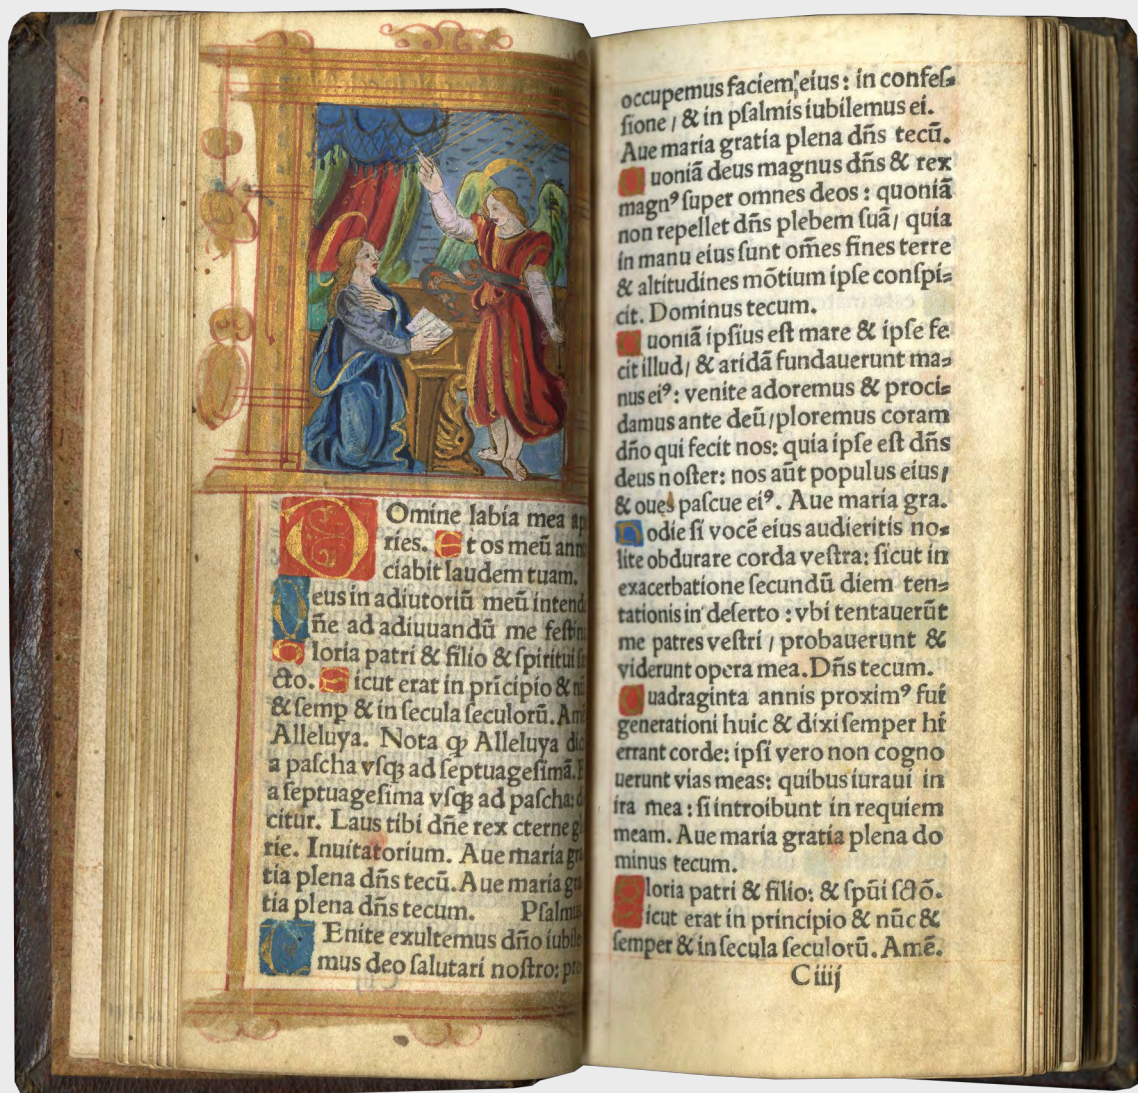 Omine labia mea ap
ries. Et os meū ann
ciabit laudem tuam.
Deus in adiutoriū meū intend
Dñe ad adiuuandū me festin
Gloria patri & filio & spiritui
cto. Sicut erat in prīcipio & nū
& semp & in secula seculorū. Amē
Alleluya. Nota ꝙ Alleluya dic
a pascha vsqꝫ ad septuagesimā.
a septuagesima vsqꝫ ad pascha: d
citur. Laus tibi dñe rex eterne g
rie. Inuitatorium. Aue maria gr
tia plena dñs tecū. Aue maria gr
tia plena dñs tecum. Psalmus
VEnite exultemus dño iubile
mus deo salutari nostro: pr
occupemus faciem eius: in confes⸗
sione / & in psalmis iubilemus ei.
Aue maria gratia plena dñs tecū.
Quoniā deus magnus dñs & rex
magnꝰ super omnes deos: quoniā
non repellet dñs plebem suā/ quia
in manu eius sunt om̄es fines terre
& altitudines mōtium ipse conspi⸗
cit. Dominus tecum.
Quoniā ipsius est mare & ipse fe
cit illud/ & aridā fundauerunt ma⸗
nus eiꝰ: venite adoremus & proci⸗
damus ante deū/ploremus coram
dño qui fecit nos: quia ipse est dñs
deus noster: nos aūt populus eius/
& oues pascue eiꝰ. Aue maria gra.
Hodie si vocē eius audieritis no⸗
lite obdurare corda vestra: sicut in
exacerbatione secundū diem ten⸗
tationis in deserto: vbi tentauerūt
me patres vestri / probauerunt &
viderunt opera mea. Dñs tecum.
Quadraginta annis proximꝰ fui
generationi huic & dixi semper hi
errant corde: ipsi vero non cogno
uerunt vias meas: quibus iuraui in
ira mea: si introibunt in requiem
meam. Aue maria gratia plena do
minus tecum.
Gloria patri & filio: & spūi sctō.
Sicut erat in principio & nūc &
semper & in secula seculorū. Amē.
C iiij